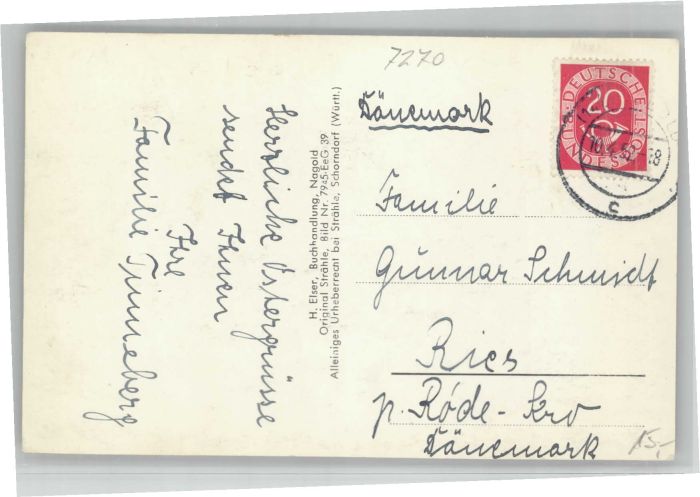 7270
Herzliche Ostergrüsse
sendet Ihnen
Ihre
Familie Tinneberg
H. Elser, Buchhandlung, Nagold
Original Strähle, Bild Nr. 7945-EeG 39
Alleiniges Urheberrecht bei Strähle, Schorndorf (Württ.)
Dänemark
DEUTSCHE
20
10.4.52
8
c
Familie
Gunnar Schmidt
Ries
p. Röde-Kro
Dänemark
15,-